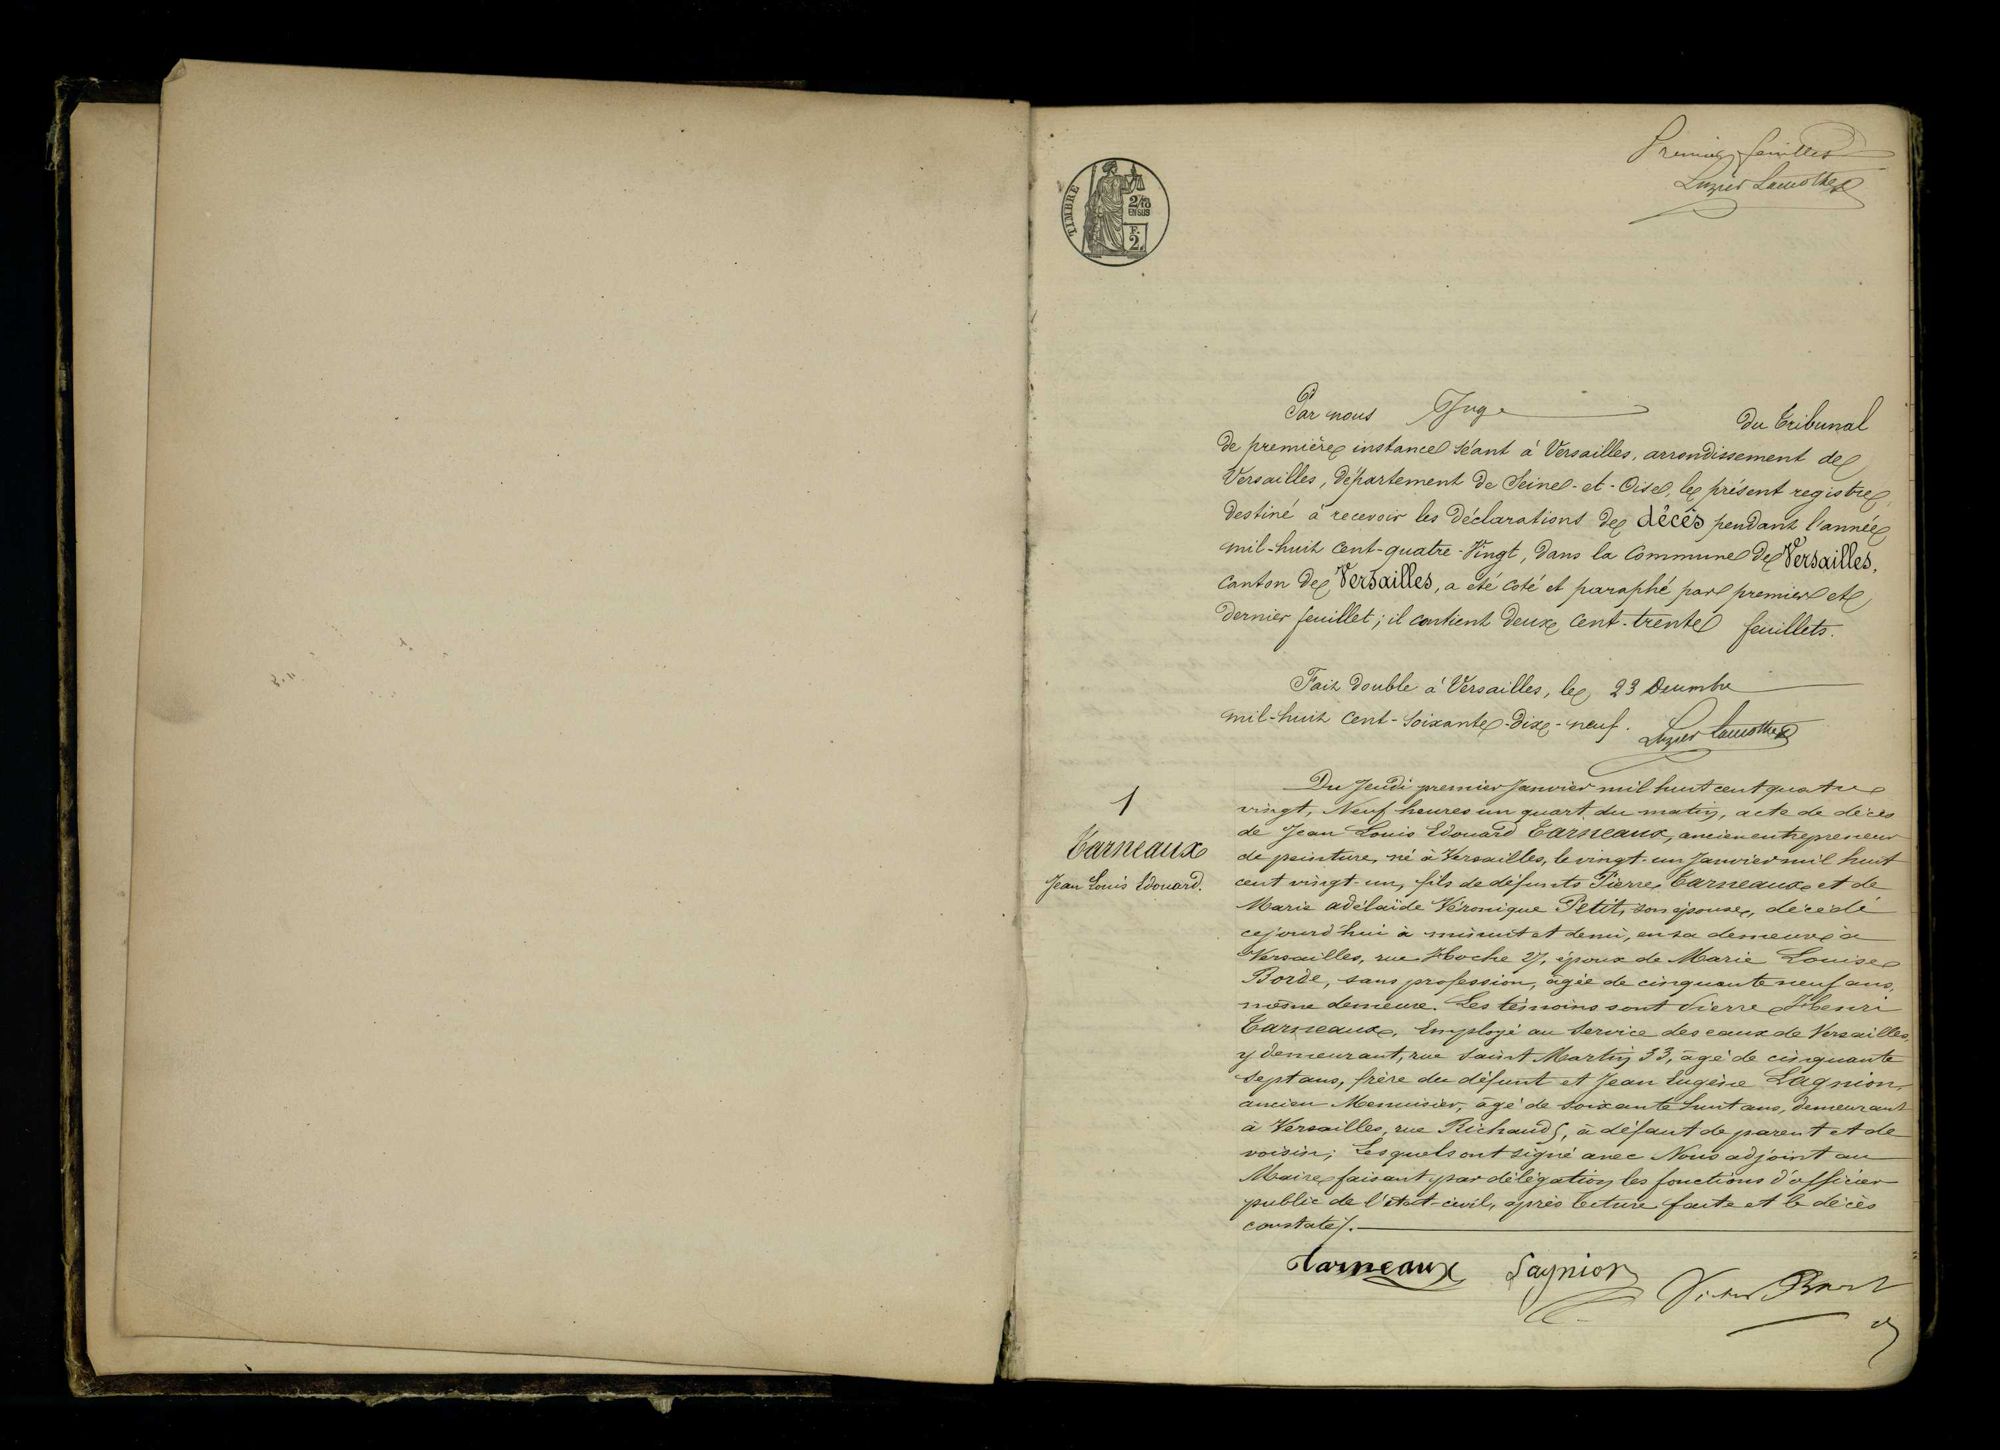 Premier feuillet
Luzier Lamothe
TIMBRE
2/10
EN SUS
F.
2.
Par nous Juge du Tribunal
de première instance séant à Versailles, arrondissement de
Versailles, département de Seine-et-Oise, le présent registre,
destiné à recevoir les déclarations de décès pendant l'année
mil-huit cent-quatre-Vingt, dans la Commune de Versailles,
canton de Versailles, a été coté et paraphé par premier et
dernier feuillet; il contient deux cent-trente feuillets.
Fait double à Versailles, le 23 Decembre
mil-huit cent-soixante-dix-neuf.
Luzier Lamothe
1
Tarneaux
Jean Louis Edouard.
Du Jeudi premier Janvier mil huit cent quatre
vingt, Neuf heures un quart du matin, acte de décès
de Jean Louis Edouard Tarneaux, ancien entrepreneur
de peinture, né à Versailles, le vingt-un Janvier mil huit
cent vingt-un, fils de défunts Pierre Tarneaux et de
Marie adélaïde Véronique Petit, son épouse, décédé
cejourd'hui à minuit et demi, en sa demeure à
Versailles, rue Hoche 27, époux de Marie Louise
Borde, sans profession, âgée de cinquante neuf ans,
même demeure. Les témoins sont Pierre Henri
Tarneaux, Employé au Service des eaux de Versailles,
y demeurant, rue Saint Martin 33, âgé de cinquante
sept ans, frère du défunt et Jean Eugène Lagnion,
ancien Menuisier, âgé de soixante huit ans, demeurant
à Versailles, rue Richaud 5, à défaut de parent et de
voisin; Lesquels ont signé avec Nous adjoint au
Maire faisant par délégation les fonctions d'officier
public de l'état-civil, après lecture faite et le décès
constaté.
Tarneaux Lagnion Victor Bart